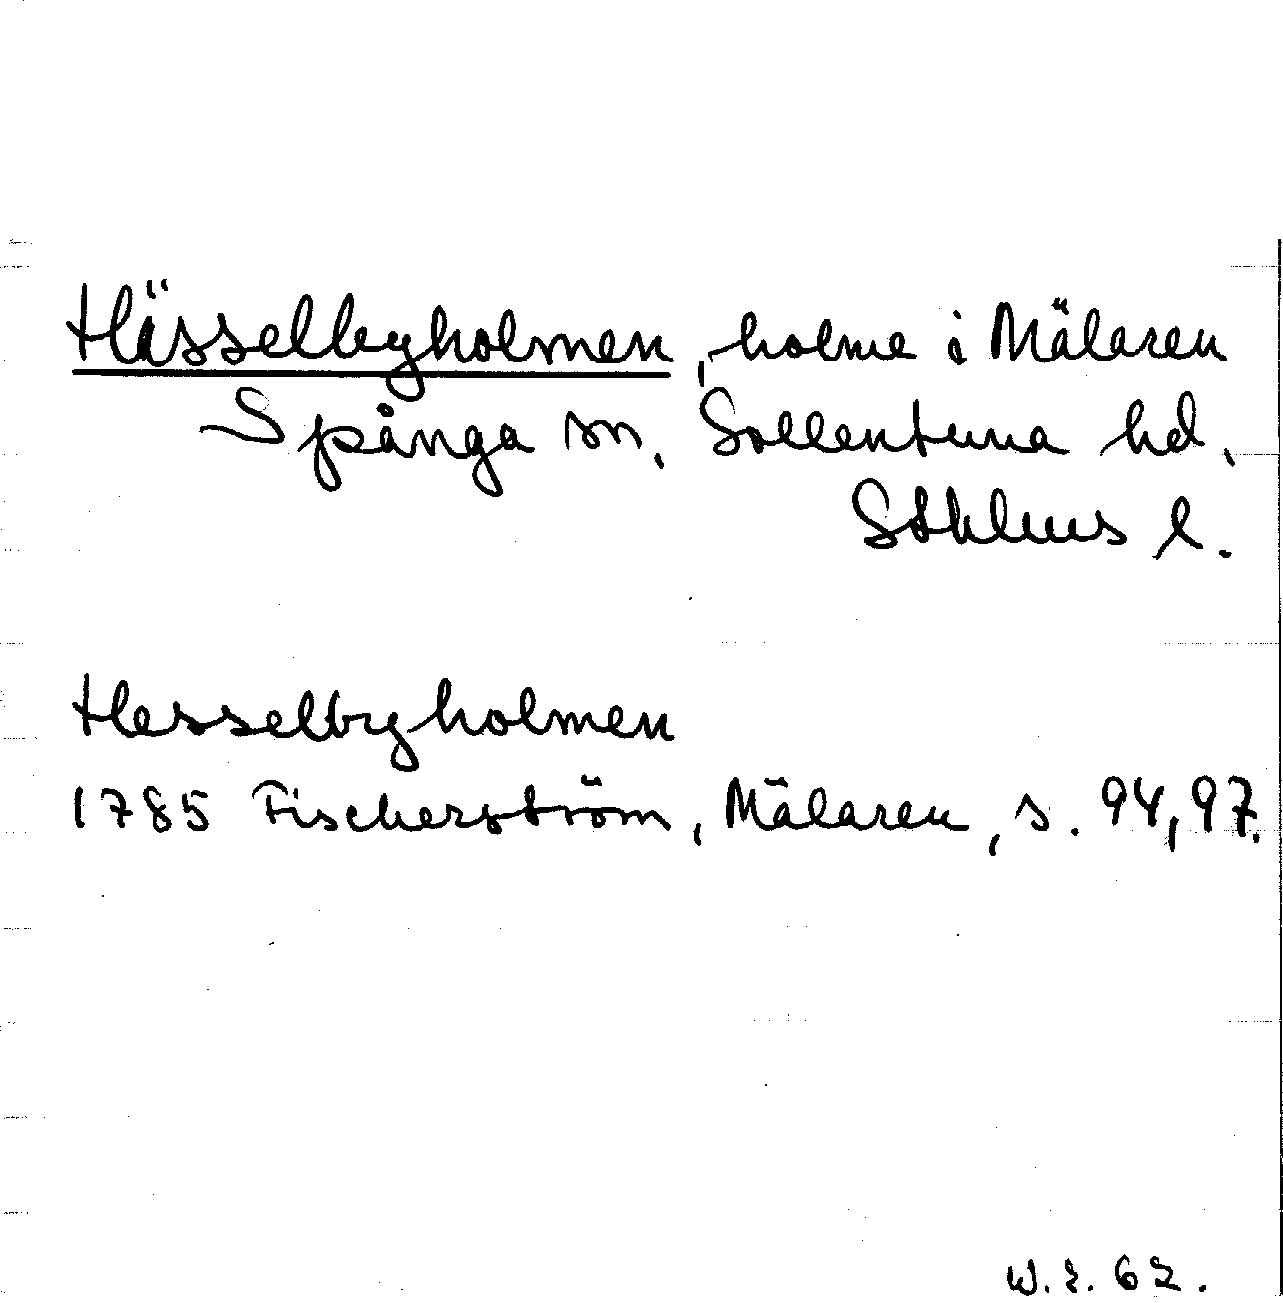 Hässelbyholmen, holme i Mälaren
Spånga sn, Sollentuna hd,
Sthlms l.
Hesselbyholmen
1785 Fischerström, Mälaren, s. 94, 97.
W.E. 62.